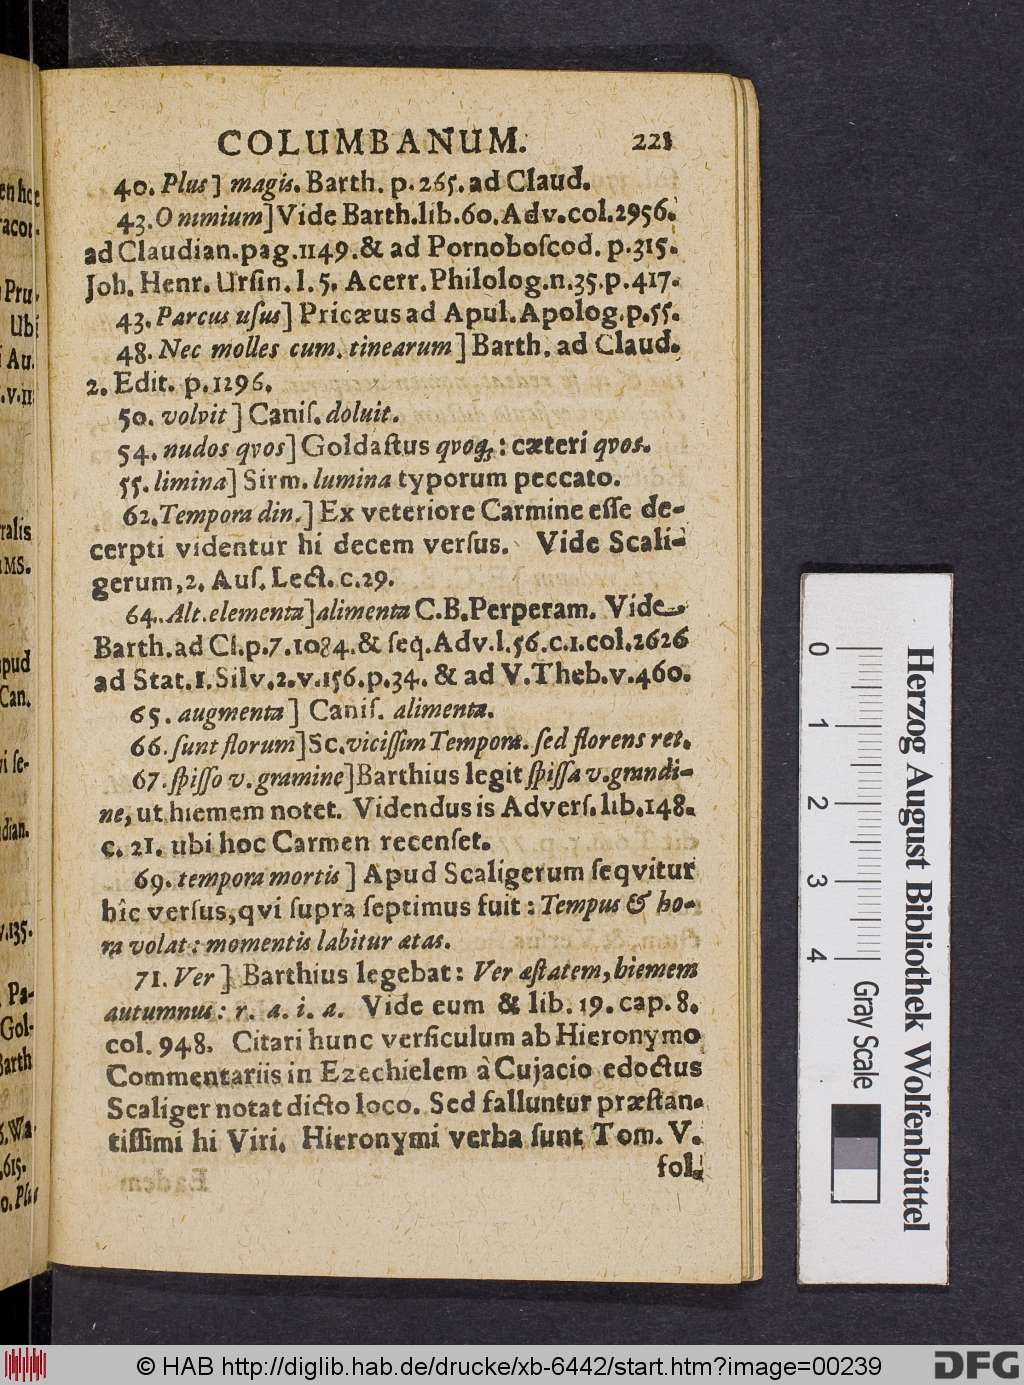 COLUMBANUM. 221
40. Plus] magis. Barth. p.265. ad Claud.
43. O nimium] Vide Barth.lib.60.Adv.col.2956.
ad Claudian.pag.1149.& ad Pornoboſcod. p.315.
Joh. Henr. Urſin. l. 5. Acerr. Philolog.n.35.p.417.
43. Parcus uſus] Pricæus ad Apul. Apolog.p.55.
48. Nec molles cum. tinearum] Barth. ad Claud.
2. Edit. p.1296.
50. volvit] Caniſ. doluit.
54. nudos qvos] Goldaſtus qvoq;: cæteri qvos.
55. limina] Sirm. lumina typorum peccato.
62. Tempora din.] Ex veteriore Carmine eſſe de-
cerpti videntur hi decem verſus. Vide Scali-
gerum, 2. Auſ. Lect. c.29.
64. Alt. elementa] alimenta C.B. Perperam. Vide
Barth. ad Cl.p.7.1084.& ſeq. Adv.l.56.c.1.col.2626
ad Stat.1.Silv.2.v.156.p.34. & ad V.Theb.v.460.
65. augmenta] Caniſ. alimenta.
66. ſunt florum] Sc. viciſſim Tempora. ſed florens ret.
67. ſpiſſo v. gramine] Barthius legit ſpiſſa v. grandi-
ne, ut hiemem notet. Videndus is Adverſ. lib.148.
c. 21. ubi hoc Carmen recenſet.
69. tempora mortis] Apud Scaligerum ſeqvitur
hîc verſus, qvi ſupra ſeptimus fuit: Tempus & ho-
ra volat: momentis labitur ætas.
71. Ver] Barthius legebat: Ver æſtatem, hiemem
autumnus: r. a. i. a. Vide eum & lib. 19. cap. 8.
col. 948. Citari hunc verſiculum ab Hieronymo
Commentariis in Ezechielem à Cujacio edoctus
Scaliger notat dicto loco. Sed falluntur præſtan-
tiſſimi hi Viri. Hieronymi verba ſunt Tom. V.
fol.
0 1 2 3 4
Gray Scale
Herzog August Bibliothek Wolfenbüttel
© HAB http://diglib.hab.de/drucke/xb-6442/start.htm?image=00239
DFG